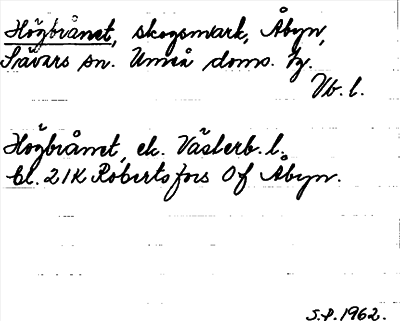 Högbrånet, skogsmark, Åbyn,
Sävars sn. Umeå doms. tg.
Vb. l.
Högbrånet, ek. Västerb. l.
bl. 21K Robertsfors Of Åbyn.
S.P. 1962.